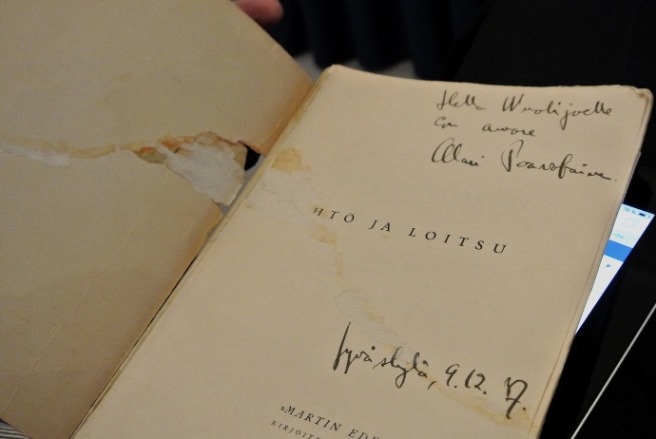 Hella Wuolijoelle
con amore
HTO JA LOITSU
Jyväskylä, 9.12.47.
»MARTIN EDE
KIRJOITT